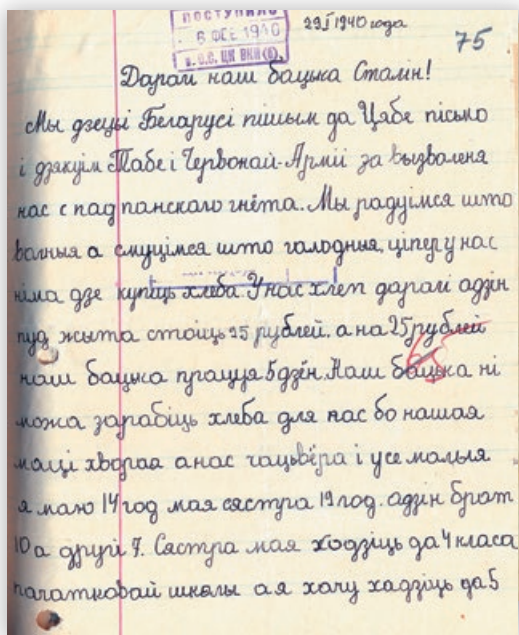 ПОСТУПИЛО
6 ФЕВ 1940
о.С. ЦК ВКП(б).
29 I 1940 года
75
Дараги наш бацька Сталін!
Мы дзеці Беларусі пішым да Цябе пісьмо
і дзякуім Табе і Червонай-Арміі за вызваленя
нас с пад панскаго гнёта. Мы радуімся што
вольныя а смуцімся што галодныя, ціпер у нас
німа дзе купиць хлеба. У нас хлеп дарагі адзін
пуд жыта стоіць 25 рублей. а на 25 рублей
наш бацька працуя 5 дзін. Наш бацька ні
можа зарабіць хлеба для нас бо нашая
маці хворая а нас чацьвёра і усе малыя
я маю 14 год мая сястра 19 год. адзін брат
10 а другій 7. Сястра мая ходзіць да 4 класа
пачатковай школы а я хачу хадзіць да 5